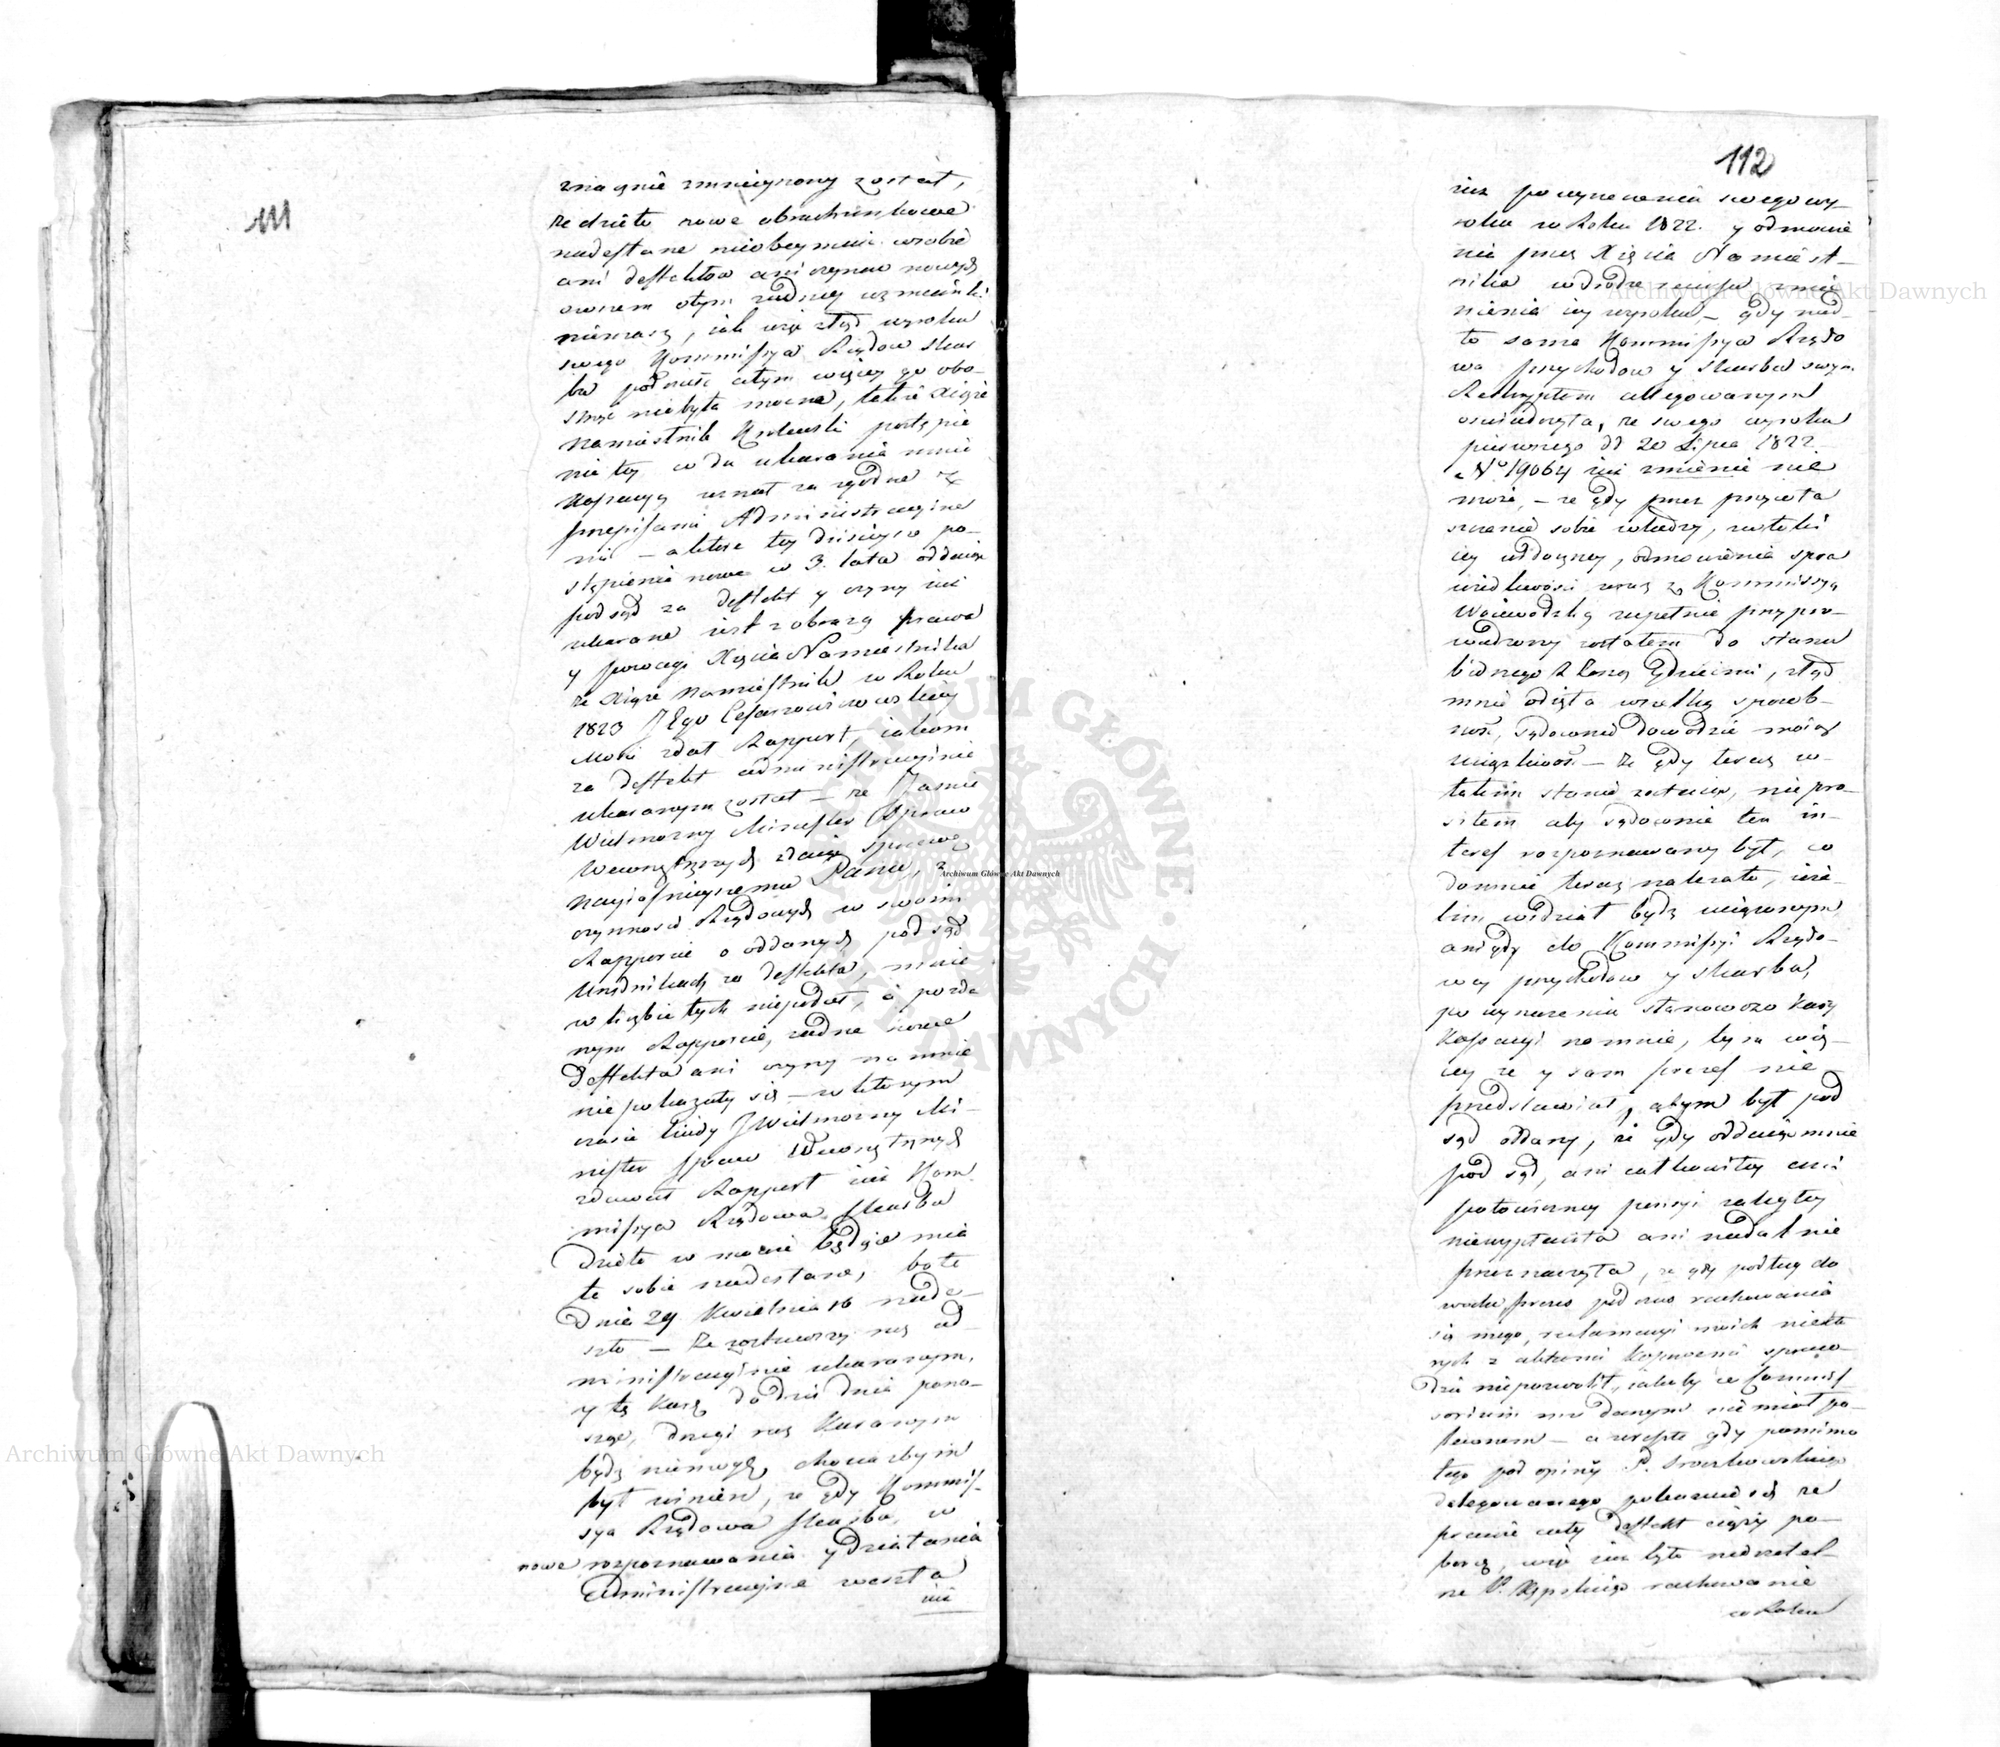 111
znacznie zmnieyszony został,
że dzieło nowe obrachunkowe
nadesłane nieobeymuie w sobie
ani defektów ani czynów nowych
owszem o tym żadney wzmianki
niemasz, iak więc z tąd wyroku
swego Kommissya Rządowa Skar
bu podnieść a tym więcey go obo-
strzyć nie była mocna, także Xiąże
Namiestnik Królewski postąpie
nie tey co do ukarania mnie
Kassacyą uznał za zgodne z
przepisami Administracyine
mi — a które tey dzisieysze po-
stąpienie nowe w 3. lata oddaiąc
pod sąd za defekt y czyny iuż
ukarane iest z obrazą prawa
y powagi Xięcia Namiestnika
że Xiąże Namiestnik w Roku
1823 JEgo Cesarzowiczowskiey
Mości zdał Rapport, iakom
za defekt administracyinie
ukaranym został — że Jaśnie
Wielmożny Minister Spraw
Wewnętrznych zdaiąc sprawę
Nayiaśnieyszemu Panu, z
czynności Rządowych w swoim
Rapporcie o oddanych pod sąd
Urzędnikach za defekta, mnie
w liczbie tych niepodał, a po zda
nym Rapporcie, żadne nowe
defekta ani czyny na mnie
nie pokazały się — w którym
czasie kiedy JWielmożny Mi-
nister Spraw Wewnętrznych
zdawał Rapport iuż Kom
missya Rządowa Skarbu
dzieło w mocie będące mia
ła sobie nadesłane, bo te
dnia 29 Kwietnia nade-
szło — Że zostawszy raz ad-
ministracyinie ukaranym,
y tę karę do dziś dnia pono-
szę, drugi raz karanym
bydź niemogę, chociażbym
był winien, że gdy Kommis-
sya Rządowa Skarbu w
nowe rozpoznawania y działania
Administracyine weszła
iuż
112
iuż po wyrzeczeniu swego wy-
roku w Roku 1822. y odmówie
niu przez Xięcia Namiest-
nika w drodze recursu zmie
nienia iey wyroku, — gdy nad
to sama Kommissya Rządo
wa Przychodów y Skarbu swym
Reskryptem allegowanym
oświadczyła, że swego wyroku
pierwszego dd 20 Lipca 1822
No 19064 iuż zmienić nie
może, — że gdy przez przywła
szczenie sobie władzy, zwłoki
iey oddaney, odmówienie spra
wiedliwości wraz z Kommissyą
Woiewódzką zupełnie przypro-
wadzony zostałem do stanu
biednego z żoną y dziećmi, z tąd
mnie odięta wszelka sposob-
ność, sądownie dowodzić moiey
niewinności — że gdy teraz w
takim stanie zostaiąc, nie pro-
siłem aby sądownie ten in-
teres rozpoznawany był, co
do mnie teraz należało, ieże-
lim widział bydź ukrzywdzonym
ani gdy do Kommissyi Rządo-
wey Przychodów y Skarbu,
po wyrzeczeniu stanowczo kary
Kassacyi na mnie, tym wię-
cey że y sam prezes nie
przedstawiał, abym był pod
sąd oddany, że gdy oddaiąc mnie
pod sąd, ani całkowitey ani
połowiczney pensyi zaległey
niewypłaciła ani nadal nie
przeznaczyła, że gdy podług do
wodu, prezes pod czas rachowania
się mego, reklamacyi moich niektó
rych z aktami Kassowemi spraw-
dzić niepozwolił, iakoby w Commis-
sorium mu danym nie miał po-
leconem — a wreszcie gdy pomimo
tego pod opinią P. Sroczkowskiego
delegowanego pokazuie się że
prawie cały defekt ciąży po-
borcę, więc iuż było niedostat-
ne P. Kępskiego rachowanie
w Roku